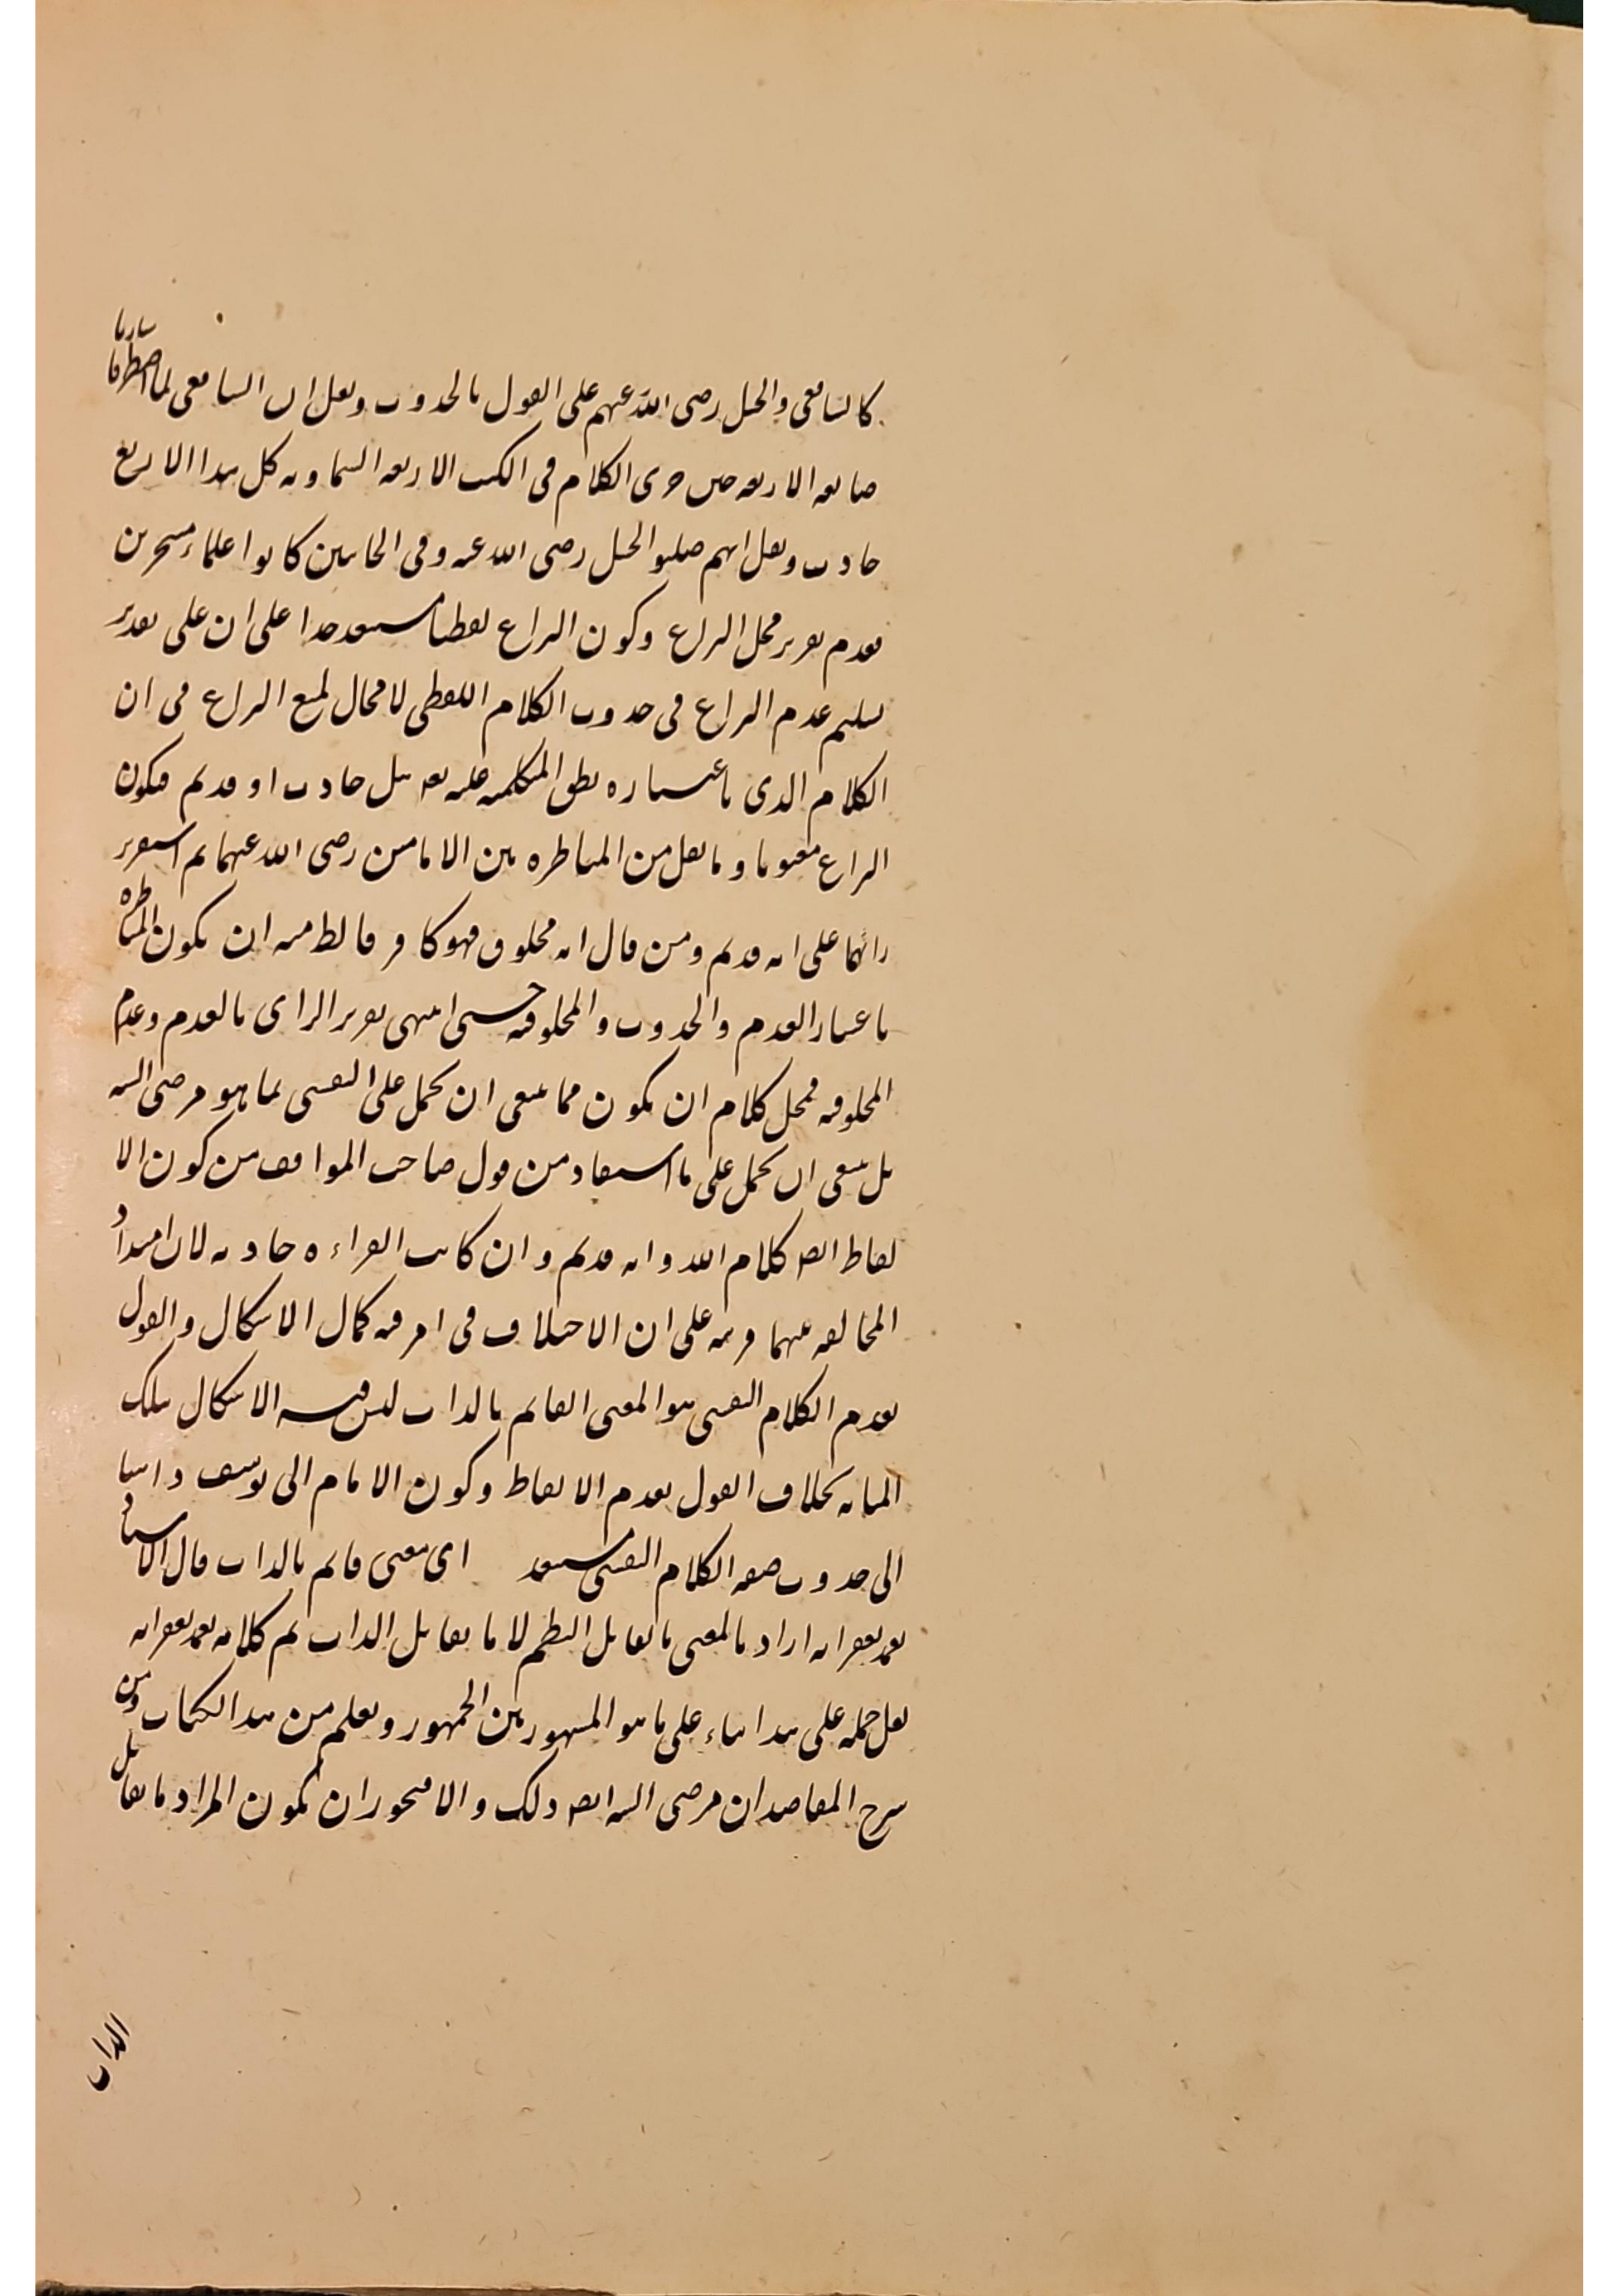 كالشافعى والحنبل رضى الله عنهم على القول بالحدوث ونقل ان الشافعى لما اضطر
الاربعه حين جرى الكلام فى الكتب الاربعه السماويه كل هذا الاربع
حادث ونقل انهم الحنبل رضى الله عنه وفى الجانبين كانوا علماء متبحرين
بعدم تقرير محل النزاع وكون النزاع لفظيا مستبعد جدا على ان على تقدير
تسليم عدم النزاع فى حدوث الكلام اللفظى لا مجال لمنع النزاع فى ان
الكلام الذى باعتباره يطلق المتكلميه عليه تعـ هل حادث او قديم فيكون
النزاع معنويا وما نقل من المناظره بين الامامين رضى الله عنهما ثم استقرير
رائهما على انه قديم ومن قال انه مخلوق فهو كافر فالظ منه ان يكون المناظره
باعتبار القدم والحدوث والمخلوقيه حتى انتهى تقرير الراى بالقدم وعدم
المخلوقيه فمحل كلام ان يكون مما ينبغى ان يحمل على النفسى لما هو مرضى الشه
بل ينبغى ان يحمل على ما استفاد من قول صاحب المواقف من كون الا
لفاظ ايضـ كلام الله وانه قديم وان كانت القراءه حادثه لان امتداد
المخالفه عنهما قرينه على ان الاختلاف فى امر فيه كمال الاشكال والقول
بقدم الكلام النفسى هو المعنى القائم بالذات ليس فيه الاشكال بتلك
المثابه بخلاف القول بقدم الالفاظ وكون الامام الى يوسف ذاهبا
الى حدوث صفه الكلام النفسى مستبعد اى معنى قائم بالذات قال الاستاد
انه اراد بالمعنى ما يقابل النظم لا ما يقابل الذات ثم كلامه
لعل حمله على هذا بناء على ما هو المشهور بين الجمهور ويعلم من هذا الكتاب ومن
شرح المقاصد ان مرضى الشه ايضـ ذلك والا فيجوز ان يكون المراد ما يقابل
الذات